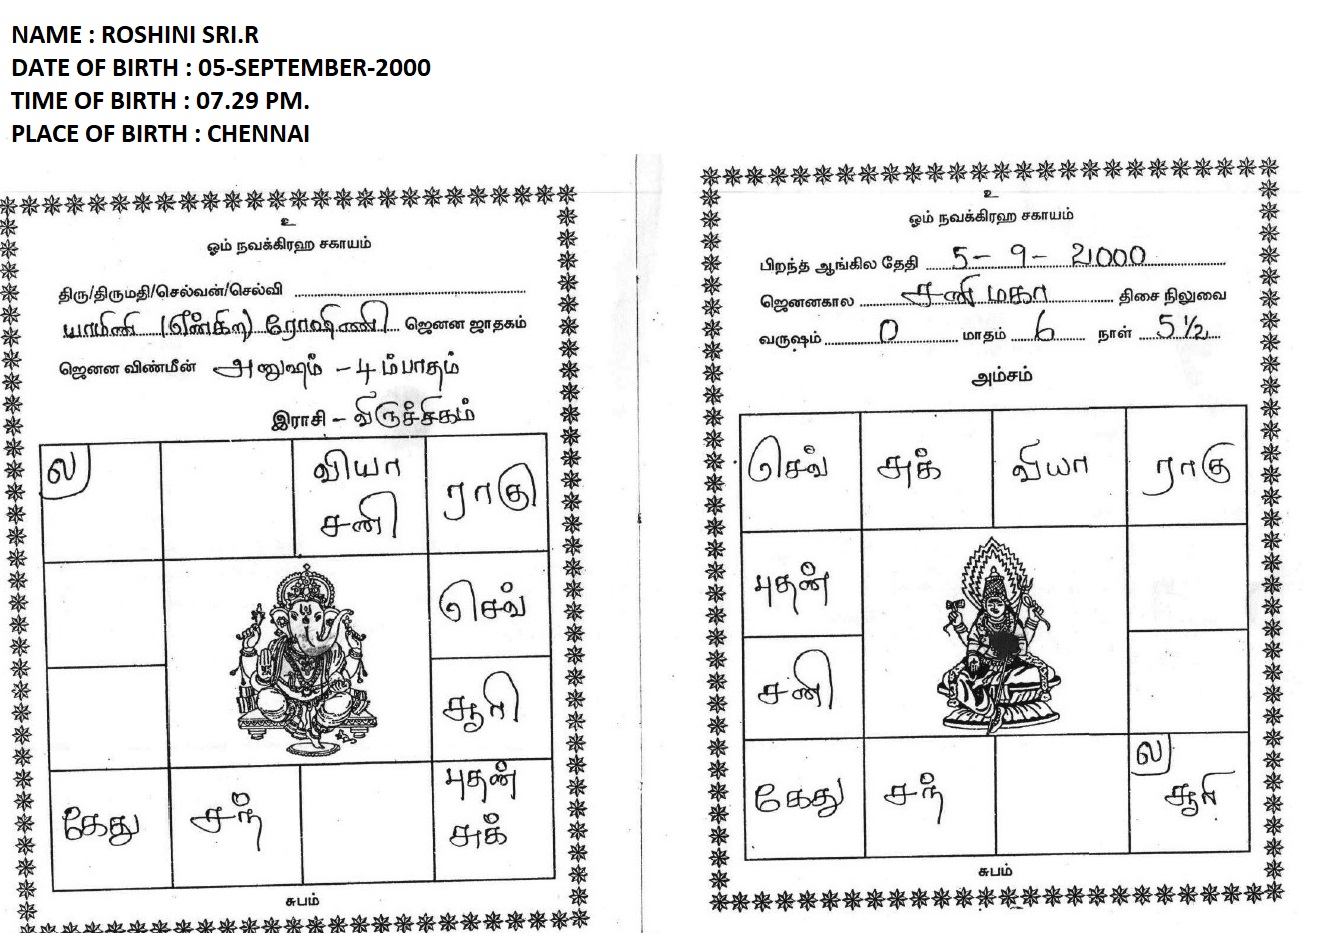 NAME : ROSHINI SRI.R
DATE OF BIRTH : 05-SEPTEMBER-2000
TIME OF BIRTH : 07.29 PM.
PLACE OF BIRTH : CHENNAI
உ
ஓம் நவக்கிரஹ சகாயம்
திரு/திருமதி/செல்வன்/செல்வி
யாமினி ரோஷிணி ஜெனன ஜாதகம்
ஜெனன விண்மீன் அனுஷம் - 4 ம்பாதம்
இராசி - விருச்சிகம்
ல
வியா
சனி
ராகு
செவ்
சூரி
கேது
சந்
புதன்
சுக்
சுபம்
உ
ஓம் நவக்கிரஹ சகாயம்
பிறந்த ஆங்கில தேதி 5 - 9 - 2000
ஜெனனகால சனி மகா திசை நிலுவை
வருஷம் 0 மாதம் 6 நாள் 5 1/2
அம்சம்
செவ்
சுக்
வியா
ராகு
புதன்
சனி
கேது
சந்
ல
சூரி
சுபம்